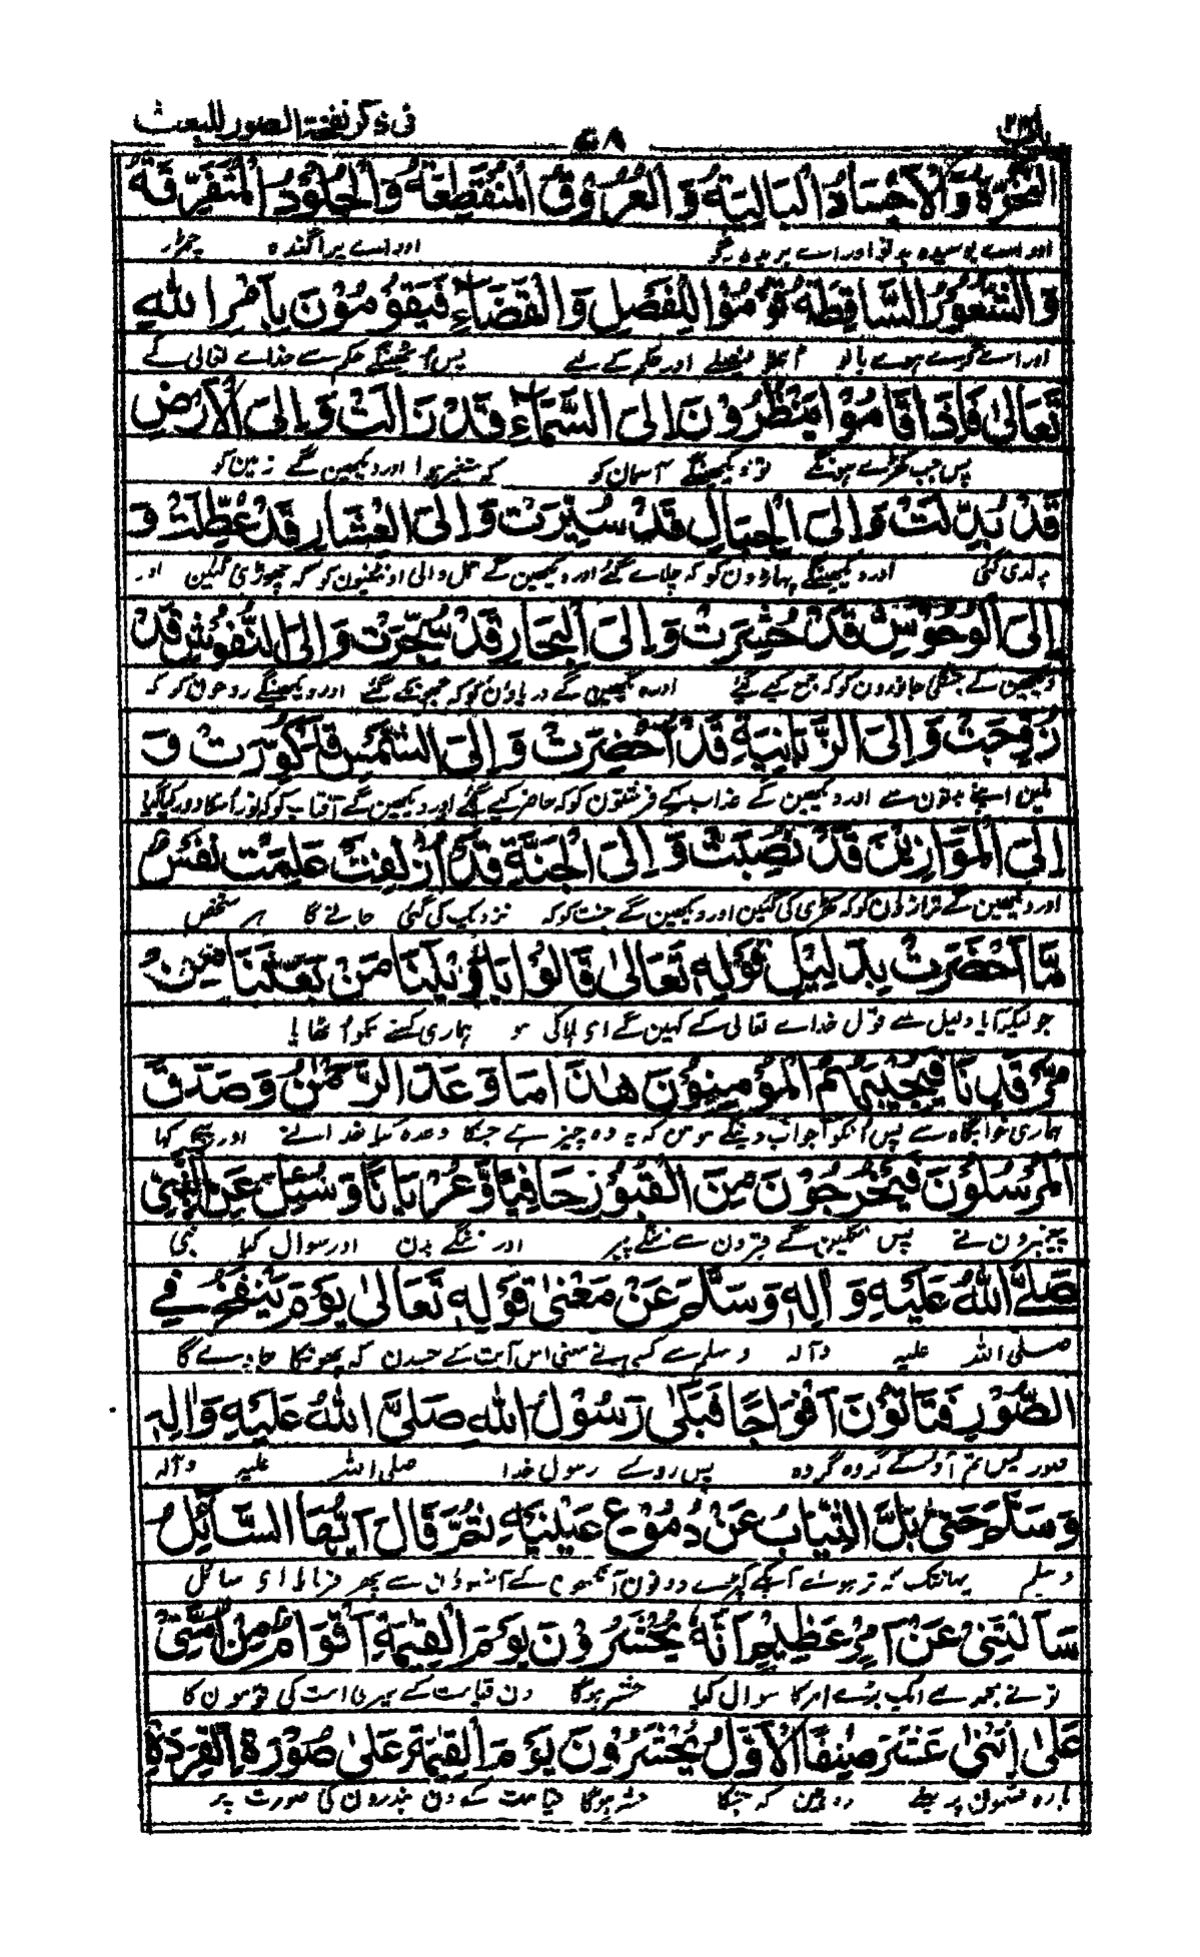 باب ۲۳
۶۸
فی ذکر نفخة الصور للبعث
النَّخِرَةُ وَالْاَجْسَادُ الْبَالِیَةُ وَالْعُرُوْقُ الْمُنْقَطِعَةُ وَالْجُلُوْدُ الْمُتَفَرِّقَةُ
اور اے بوسیدہ بدنو اور اے بریدہ رگو اور اے پراگندہ چمڑو
وَالشُّعُوْرُ السَّاقِطَةُ قُوْمُوْا لِلْفَصْلِ وَالْقَضَاءِ فَیَقُوْمُوْنَ بِاَمْرِ اللهِ
اور اے گرے ہوے بالو اٹھو فیصلے اور حکم کے لیے پس اٹھینگے حکم سے خداے تعالی کے
تَعَالٰی فَاِذَا قَامُوْا یَنْظُرُوْنَ اِلَی السَّمَاءِ قَدْ زَالَتْ وَاِلَی الْاَرْضِ
پس جب کھڑے ہونگے تو دیکھینگے آسمان کو کہ متغیر ہوا اور دیکھین گے زمین کو
قَدْ بُدِّلَتْ وَاِلَی الْجِبَالِ قَدْ سُیِّرَتْ وَاِلَی الْعِشَارِ قَدْ عُطِّلَتْ وَ
بدلدی گئی اور دیکھینگے پہاڑون کو کہ چلاے گئے اور دیکھین گے حمل والی اونٹنیون کو کہ چھوڑی گئین اور
اِلَی الْوُحُوْشِ قَدْ حُشِرَتْ وَاِلَی الْبِحَارِ قَدْ سُجِّرَتْ وَاِلَی النُّفُوْسِ قَدْ
دیکھین گے جنگلی جانورون کو کہ جمع کیے گئے اور دیکھین گے دریاؤن کو کہ جھونکے گئے اور دیکھینگے روحون کو کہ
زُوِّجَتْ وَاِلَی الزَّبَانِیَةِ قَدْ اُحْضِرَتْ وَاِلَی الشَّمْسِ قَدْ کُوِّرَتْ وَ
ملین اپنے بدنون سے اور دیکھین گے عذاب کے فرشتون کو کہ حاضر کیے گئے اور دیکھین گے آفتاب کو کہ نور اسکا دور کیا گیا
اِلَی الْمَوَازِیْنَ قَدْ نُصِبَتْ وَاِلَی الْجَنَّةِ قَدْ اُزْلِفَتْ عَلِمَتْ نَفْسٌ
اور دیکھین گے ترازوون کو کہ کھڑی کی گئین اور دیکھین گے جنت کو کہ نزدیک کی گئی جانے گا ہر شخص
مَّا اَحْضَرَتْ بِدَلِیْلِ قَوْلِهٖ تَعَالٰی قَالُوْا یَا وَیْلَنَا مَنْ بَعَثَنَا مِنْ
جو لیکر آیا دلیل سے قول خداے تعالی کے کہین گے ای ہلاکی ہو ہماری کسنے ہمکو اُٹھایا
مَّرْقَدِنَا فَیُجِیْبُهُمُ الْمُؤْمِنُوْنَ هٰذَا مَا وَعَدَ الرَّحْمٰنُ وَصَدَقَ
ہماری خوابگاہ سے پس اُنکو جواب دینگے مومن کہ یہ وہ چیز ہے جسکا وعدہ کیا خدا نے اور سچ کہا
الْمُرْسَلُوْنَ فَیَخْرُجُوْنَ مِنَ الْقُبُوْرِ حَافِیًا وَّعُرْیَانًا وَسُئِلَ عَنِ النَّبِیِّ
پیغمبرون نے پس نکلین گے قبرون سے ننگے پیر اور ننگے بدن اور سوال کیا نبی
صَلَّی اللهُ عَلَیْهِ وَ اٰلِهٖ وَسَلَّمَ عَنْ مَعْنٰی قَوْلِهٖ تَعَالٰی یَوْمَ یُنْفَخُ فِی
صلی اللہ علیہ وآلہ وسلم سے کسی نے معنی اس آیت کے جسدن کہ پھونکا جاوے گا
الصُّوْرِ فَتَاْتُوْنَ اَفْوَاجًا فَبَکٰی رَسُوْلُ اللهِ صَلَّی اللهُ عَلَیْهِ وَاٰلِهٖ
صور پس تم آؤگے گروہ گروہ پس روے رسول خدا صلی اللہ علیہ وآلہ
وَسَلَّمَ حَتّٰی بَلَّ الثِّیَابُ عَنْ دُمُوْعِ عَیْنَیْهِ ثُمَّ قَالَ اَیُّهَا السَّائِلُ
وسلم یہانتک کہ تر ہوے آپکے کپڑے دونون آنکھون کے آنسوؤن سے پھر فرمایا ای سائل
سَاَلْتَنِیْ عَنْ اَمْرٍ عَظِیْمٍ اَنَّهٗ یُحْشَرُوْنَ یَوْمَ الْقِیٰمَةِ اَقْوَامٌ مِنْ اُمَّتِیْ
تو نے مجھ سے ایک بڑے امر کا سوال کیا حشر ہوگا دن قیامت کے میری امت کی قومون کا
عَلٰی اِثْنٰی عَشَرَ صِنْفًا الْاَوَّلُ یُحْشَرُوْنَ یَوْمَ الْقِیٰمَةِ عَلٰی صُوْرَةِ الْقِرَدَةِ
بارہ قسمون پر پہلے وہ ہین کہ جنکا حشر ہوگا قیامت کے دن بندرون کی صورت پر